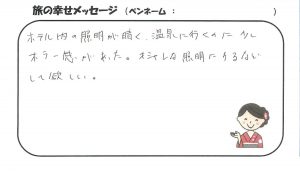 旅の幸せメッセージ（ペンネーム： ）
ホテル内の照明が暗く、温泉に行くのに少し
ホラー感があった。オシャレな照明にするなり
して欲しい。